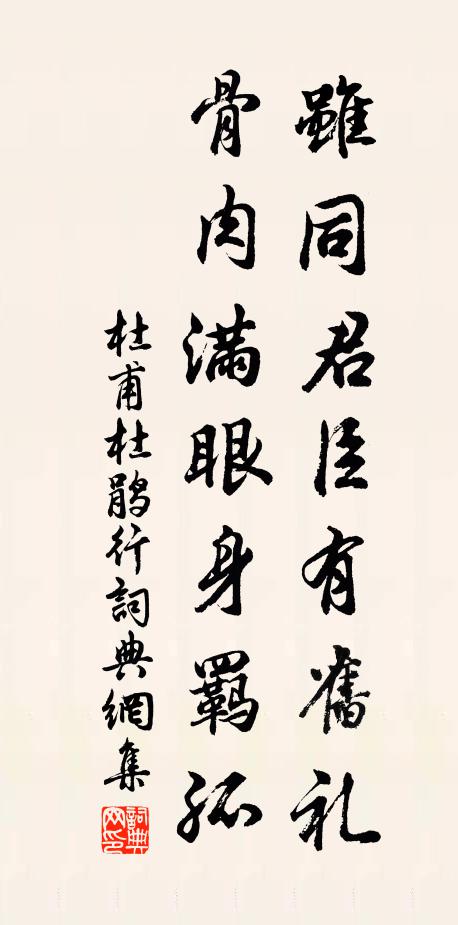 雖同君臣有舊礼
骨肉滿眼身羈孤
杜甫杜鵑行詞典網集
詞典网印